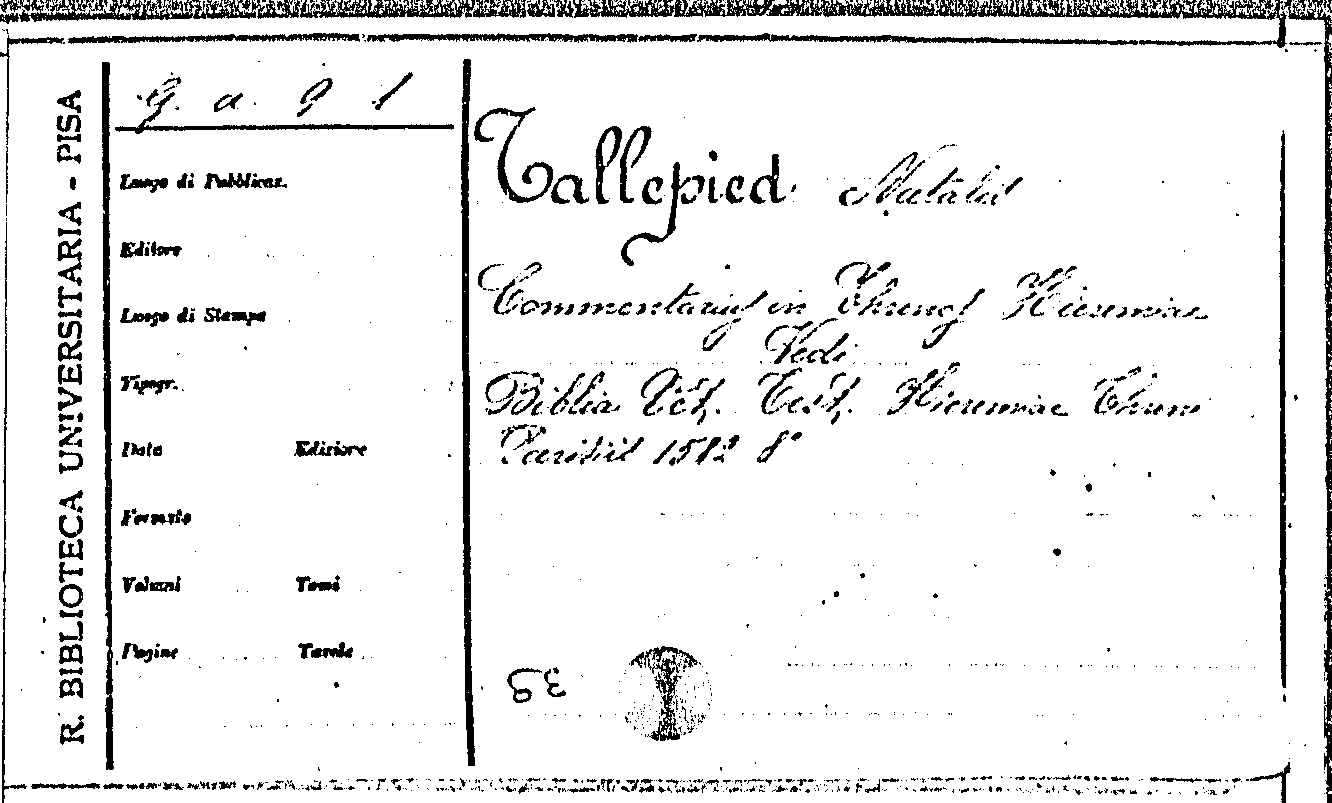 R. BIBLIOTECA UNIVERSITARIA - PISA
G. a. 9 1
Luogo di Pubblicaz.
Editore
Luogo di Stampa
Tipogr.
Data Edizione
Formato
Volumi Tomi
Pagine Tavole
Tallepied Natalis
Commentarius in Threnos Hieremiae
Vedi
Biblia Vet. Test. Hieremiae Thren
Parisiis 1582 8°